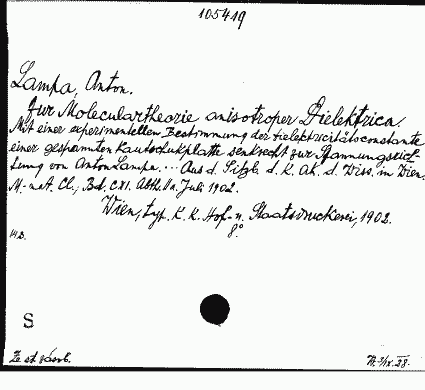 105419
Lampa, Anton.
Zur Moleculartheorie anisotroper Dielektrica.
Mit einer experimentellen Bestimmung der Dielektricitätsconstante
einer gespannten Kautschukplatte senkrecht zur Spannungsrich-
tung von Anton Lampa. ... Aus d. Sitzb. d. K. Ak. d. Wiss. in Wien.
M.-nat. Cl.; Bd. CXI. Abth. IIa. Juli 1902.
Wien, typ. K. K. Hof- u. Staatsdruckerei, 1902.
8°
S